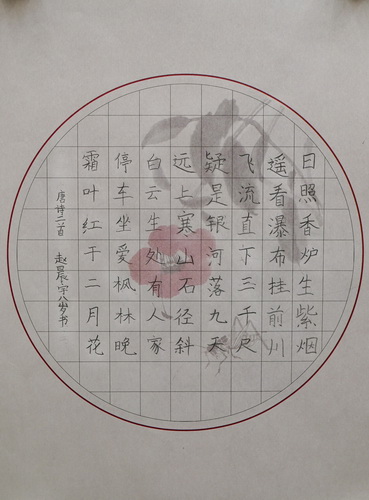 日照香炉生紫烟
遥看瀑布挂前川
飞流直下三千尺
疑是银河落九天
远上寒山石径斜
白云生处有人家
停车坐爱枫林晚
霜叶红于二月花
唐诗二首 赵晨宇八岁书